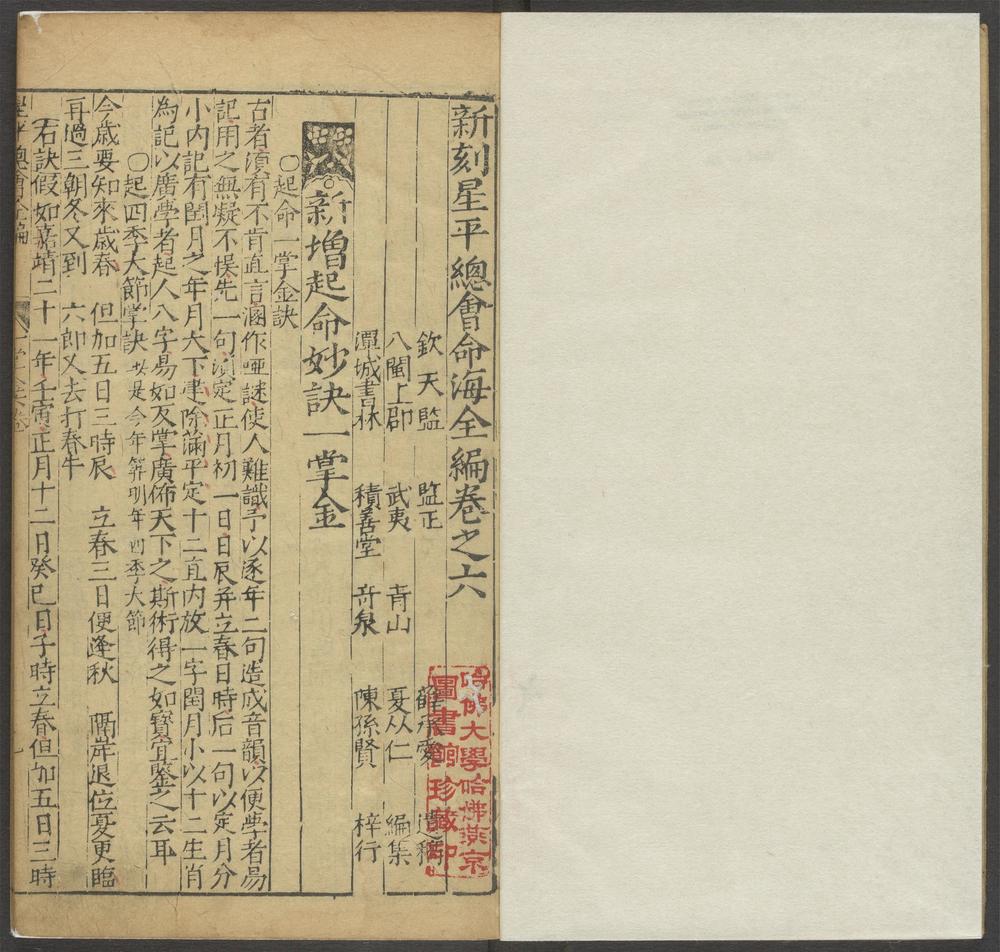 新刻星平總會命海全編卷之六
欽天監 監正 薛承愛
八閩上郡 武夷 青山 夏从仁 編集
潭城書林 積善堂 奇泉 陳孫賢 梓行
新增起命妙訣一掌金
○起命一掌金訣
古者湏有不肯直言溷作啞謎使人難識予以逐年二句造成音韻以便學者易
記用之無疑不悮先一句湏定正月初一日日辰并立春日時后一句以定月分
小内記有閏月之年月大下建除滿平定十二直内放一字閏月小以十二生肖
為記以廣學者起人八字易如反掌廣佈天下之斯術得之如寳宜鑒之云耳
○起四季大節掌訣 此是今年筭明年四季大節
今歲要知來歲春 但加五日三時辰 立春三日便逢秋 隔岸退位夏更臨
再過三朝冬又到 六即又去打春牛
右訣假如嘉靖二十一年壬寅正月十二日癸巳日子時立春但加五日三時
星平總會全編
哈佛大學哈佛燕京圖書館珍藏印